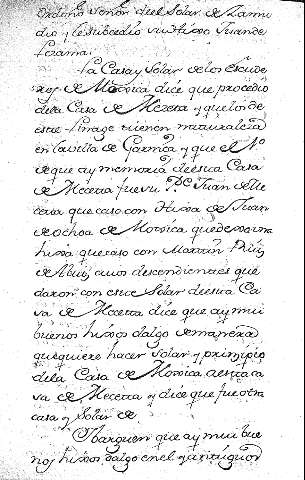 Ordeño Señor deel Solar de Zamu
dio y le subcedio su Hixo Juan de
Lezama.
La Casa y Solar de los Escude
ros de Morsica dice que procedio
dela Casa de Mezeta y que los de
este Linage tienen naturaleza
en la villa de y que el 1º
de que ay memoria desta Casa
de Mezeta fue un Pº Juan de Me
zeta que caso con Hixa de Juan
de ochoa de Morsica que de
hixa que caso con Martin Ruiz
de cuios descendientes que
daron con este Solar desta Ca
sa de Mezeta dice que ay mui
buenos hixos dalgo de manera
que quiere hacer Solar y principio
dela Casa de Morsica, desta ca
sa de Mezeta y dice que fue otra
casa y Solar de
Ibarguen que ay mui bue
nos hixos dalgo en el y antiguos